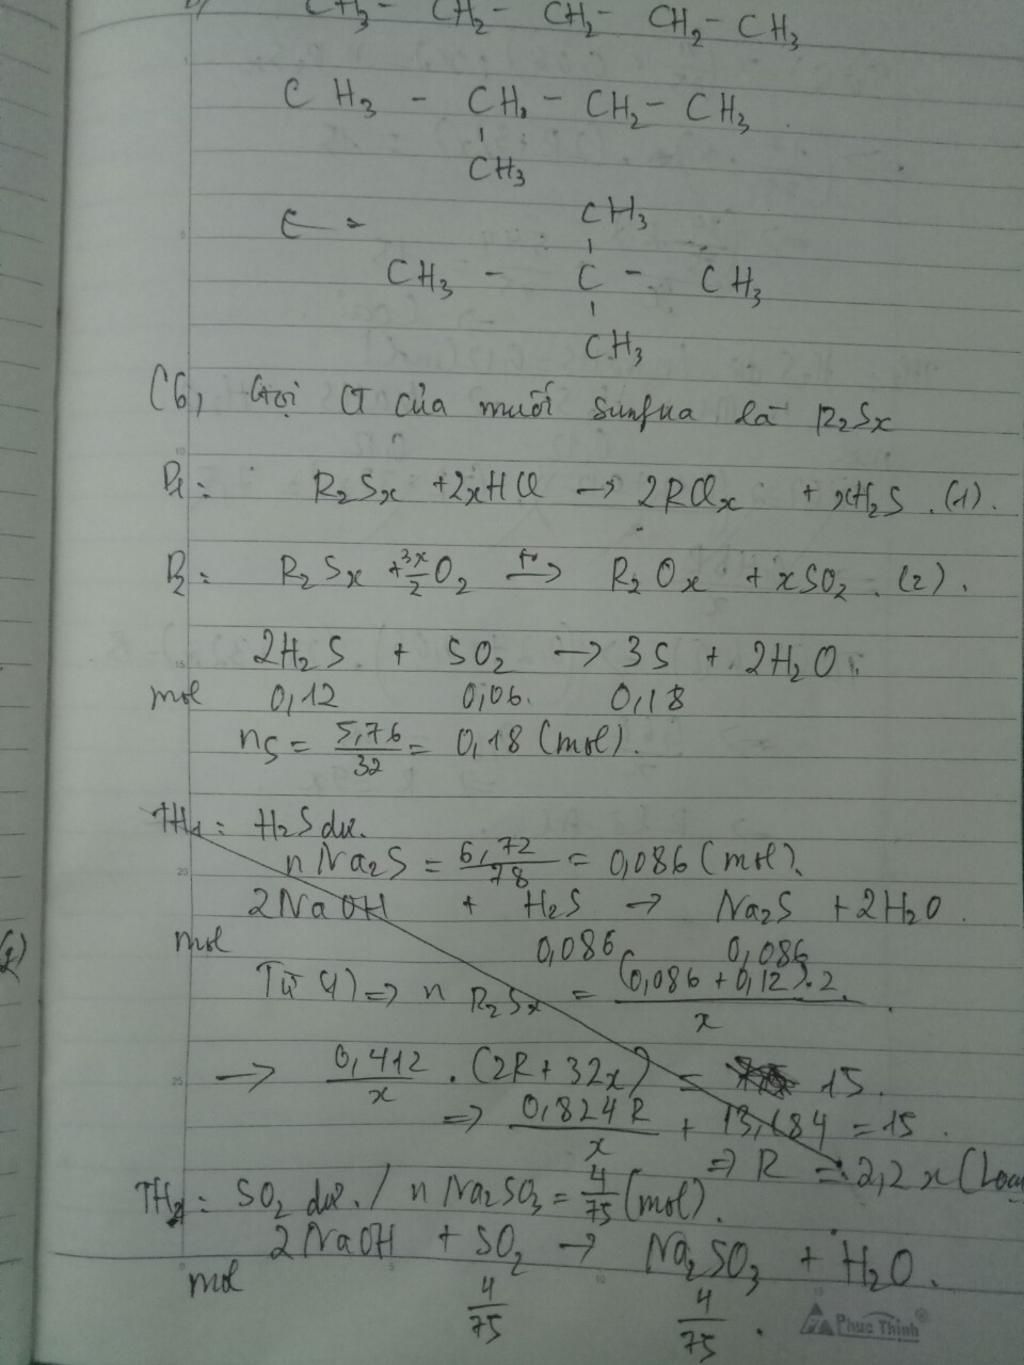 CH3 - CH2 - CH2 - CH2 - CH3
CH3 - CH - CH2 - CH3
CH3
CH3
CH3 - C - CH3
CH3
C6, Gọi CT của muối sunfua là R2Sx
P1: R2Sx + 2xHCl → 2RClx + xH2S. (1).
P2: R2Sx + 3x/2 O2 t° → R2Ox + xSO2. (2).
2H2S + SO2 → 3S + 2H2O
mol 0,12 0,06. 0,18
nS = 5,76/32 = 0,18 (mol).
TH1: H2S dư.
n Na2S = 6,72/78 = 0,086 (mol).
2NaOH + H2S → Na2S + 2H2O.
mol 0,086 0,086
Từ (1) => n R2Sx = (0,086 + 0,12).2/x.
→ 0,412/x . (2R + 32x) = 15.
=> 0,824R/x + 13,184 = 15.
=> R = 2,2x (Loại
TH2: SO2 dư. / n Na2SO3 = 4/75 (mol).
2NaOH + SO2 → Na2SO3 + H2O.
mol 4/75 4/75.
Phuc Thinh